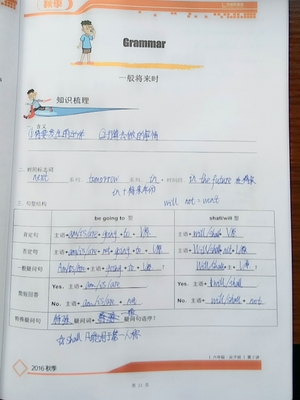 秋季
Grammar
一般将来时
知识梳理
①将要发生的动作 ②打算去做的事情
二、时间标志词
next 系列 tomorrow 系列 in + 时间段 in the future 在将来
in + 将来年份
will not = won't
三、句型结构
be going to 型 shall/will 型
肯定句 主语+am/is/are+going+to+V原 主语+will/shall+V原
否定句 主语+am/is/are+not+going+to+V原 主语+will/shall+not+V原
一般疑问句 Am/Is/Are+主语+going+to+V原? Will/Shall+主语+V原?
简短回答 Yes. 主语+am/is/are Yes. 主语+will/shall
No. 主语+am/is/are+not No. 主语+will/shall+not
特殊疑问句 特殊疑问词+一般疑问句语序?
☆ shall 只能用于第一人称
2016 秋季
第 11 页